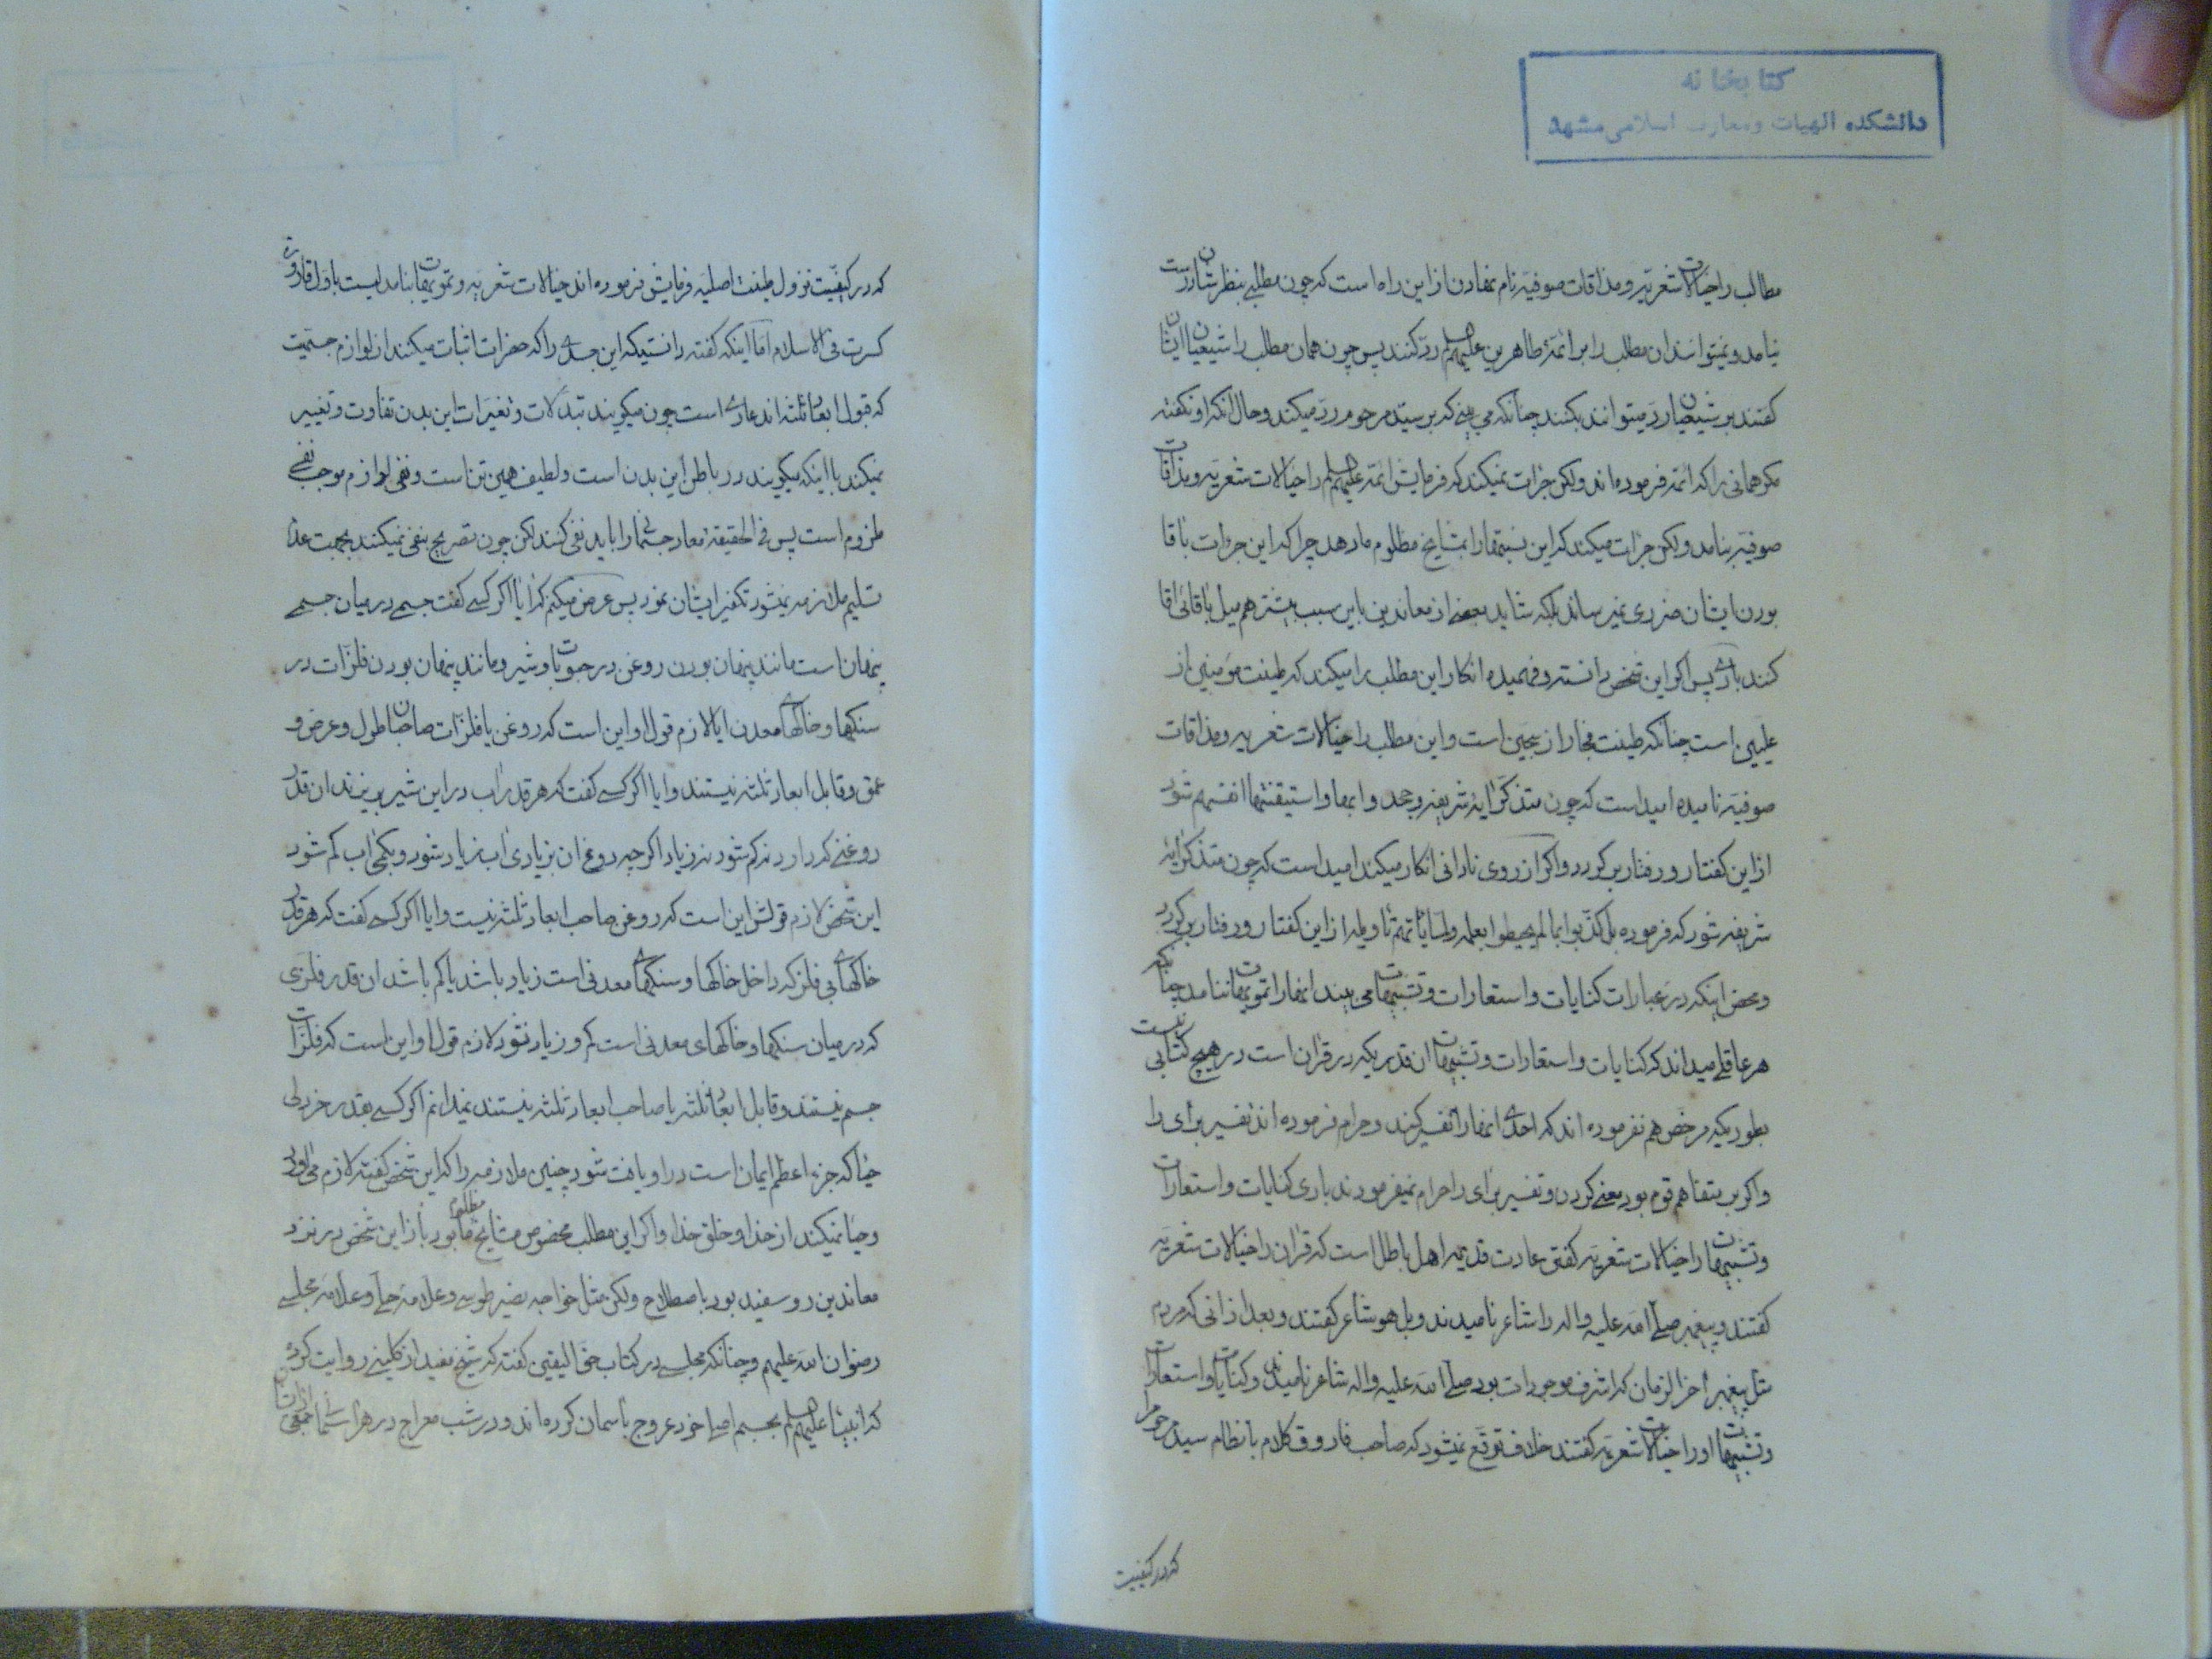 کتابخانه
دانشکده الهیات و معارف اسلامی مشهد
مطالب را خیالات شعریّه و مذاقات صوفیّه نام نهادن از این راه است که چون مطلبی بنظرشان درست
نیامد و نمیتوانند ان مطلب را بر ائمّهٔ طاهرین علیهم السلم ردّ کنند پس چون همان مطلب را شیعیان ایشان
گفتند بر شیعیان ردّ میتوانند بکنند چنانکه می بینی که بر سیّد مرحوم ردّ میکند و حال انکه او نگفته
مگر همانی را که ائمّه فرموده اند ولکن جرات نمیکند که فرمایش ائمّه علیهم السلم را خیالات شعریّه و مذاقات
صوفیّه بنامد ولکن جرات میکند که این نسبتها را بمشایخ مظلوم ما دهد چرا که این جرات باقا
بودن ایشان ضرری نمیرساند بلکه شاید بعضی از معاندین باین سبب بیشتر هم میل باقائی اقا
کنند باری پس اگر این شخص دانسته و فهمیده انکار این مطلب را میکند که طینت مؤمنین از
علیین است چنانکه طینت فجار از سجین است و این مطلب را خیالات شعریه و مذاقات
صوفیّه نامیده امید است که چون متذکّر ایهٔ شریفه وجحدوا بها واستیقنتها انفسهم شود
از این گفتار و رفتار برگردد و اگر از روی نادانی انکار میکند امید است که چون متذکر ایهٔ
شریفه شود که فرموده بل کذّبوا بما لم یحیطوا بعلمه ولمّا یأتهم تاویله از این گفتار و رفتار برگردد
و محض اینکه در عبارات کنایات و استعارات و تشبیهات می بیند انها را تمویهات ننامد چنانکه
هر عاقلی میداند که کنایات و استعارات و تشبیهات ان قدریکه در قران است در هیچ کتابی نیست
بطوریکه مرخص هم نفرموده اند که احدی انها را تفسیر کند و حرام فرموده اند تفسیر برای را
و اگر بر متفاهم قوم بود معنی کردن و تفسیر برای را حرام نمیفرمودند باری کنایات و استعارات
و تشبیهات را خیالات شعریّه گفتن عادت قدیمهٔ اهل باطل است که قران را خیالات شعریّه
گفتند و پیغمبر صلّی الله علیه واله را شاعر نامیدند و بل هو شاعر گفتند و بعد از انی که مردم
مثل پیغمبر اخر الزمان که اشرف موجودات بود صلّی الله علیه واله شاعر نامیدند و کنایات و استعارات
و تشبیهات او را خیالات شعریّه گفتند خلاف توقع نمیشود که صاحب فاروق کلام بانظام سید مرحوم را
که در کیفیت
که در کیفیّت نزول طینت اصلیّه فرمایش فرموده اند خیالات شعریّه و تمویهات بنامد لیست باوّل قارورة
کسرت فی الاسلام امّا اینکه گفته دانستیکه این جسدی را که حضرات اثبات میکنند از لوازم جسمیّت
که قبول ابعاد ثلثه اند عاری است چون میگویند تبدّلات و تغیّرات این بدن تفاوت و تغییر
نمیکند با اینکه میگویند در باطن این بدن است و لطیف همین تن است و نفی لوازم موجب نفی
ملزوم است پس فی الحقیقة معاد جسمانی را باید نفی کنند لکن چون تصریح بنفی نمیکنند بجهت عدم
تسلیم ملازمه نمیشود تکفیر ایشان نمود پس عرض میکنم که ایا اگر کسی گفت جسمی در میان جسمی
پنهان است مانند پنهان بودن روغن در حبوبات و شیر و مانند پنهان بودن فلزّات در
سنگها و خاکهای معدن ایا لازم قول او این است که روغن یا فلزّات صاحبان طول و عرض و
عمق و قابل ابعاد ثلثه نیستند و ایا اگر کسی گفت که هر قدر اب در این شیر بریزند ان قدر
روغنی که دارد نه کم شود نه زیاد اگرچه دوغ ان بزیادی اب زیاد شود و بکمی اب کم شود
این شخص لازم قولش این است که روغن صاحب ابعاد ثلثه نیست و ایا اگر کسی گفت که هر قدر
خاکهای بی فلز که داخل خاکها و سنگهای معدنی است زیاد باشد یا کم باشد ان قدر فلزی
که در میان سنگها و خاکهای معدنی است کم و زیاد نشود لازم قول او این است که فلزّات
جسم نیستند و قابل ابعاد ثلثه یا صاحب ابعاد ثلثه نیستند نمیدانم اگر کسی بقدر خردلی
حیا که جزء اعظم ایمان است در او یافت شود چنین ملازمه را که این شخص گفته لازم می اورد
و حیا نمیکند از خدا و خلق خدا و اگر این مطلب مخصوص مشایخ مظلوم ما بود باز این شخص در نزد
معاندین رو سفید بود باصطلاح ولکن مثل خواجه نصیر طوسی و علامهٔ حلّی و علامهٔ مجلسی
رضوان الله علیهم و چنانکه مجلسی در کتاب حق الیقین گفته که شیخ مفید از کلینی روایت کرده
که انبیا علیهم السلم بجسم اصلی خود عروج باسمان کرده اند و در شب معراج در هر اسمانی جمعی از ایشان